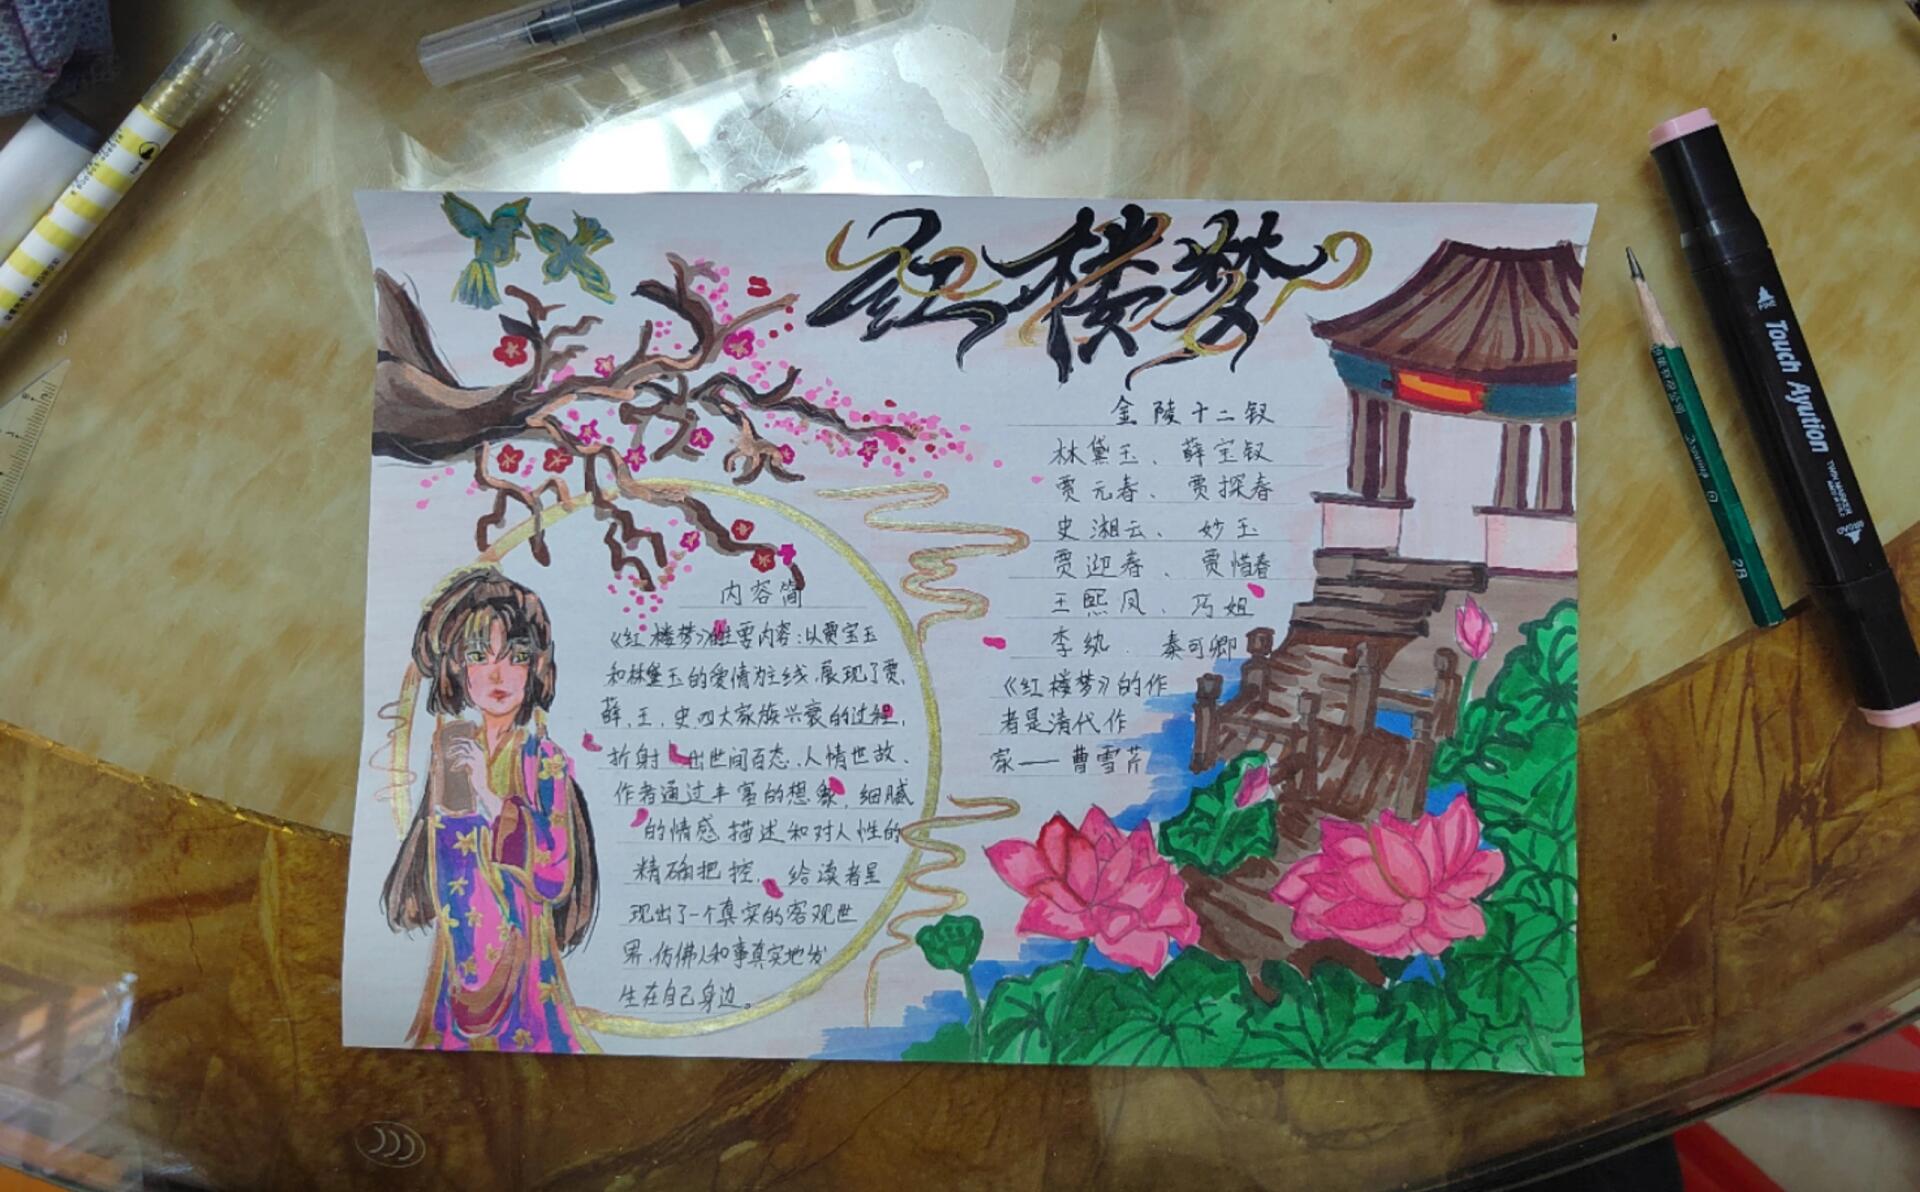 红楼梦
内容简
《红楼梦》的主要内容:以贾宝玉
和林黛玉的爱情为主线,展现了贾、
薛、王、史四大家族兴衰的过程,
折射出世间百态、人情世故、
作者通过丰富的想象,细腻
的情感描述和对人性的
精确把控,给读者呈
现出了一个真实的客观世
界,仿佛人和事真实地发
生在自己身边。
金陵十二钗
林黛玉、薛宝钗
贾元春、贾探春
史湘云、妙玉
贾迎春、贾惜春
王熙凤、巧姐
李纨、秦可卿
《红楼梦》的作
者是清代作
家——曹雪芹
Touch Ayution
TWIN MARKER
2B